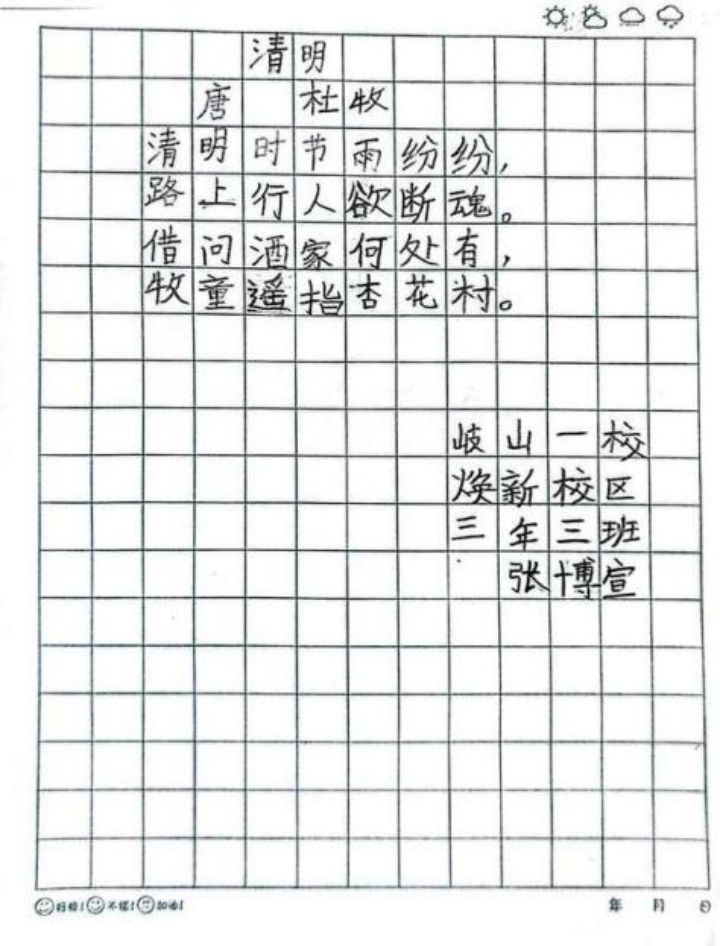 清明
唐 杜牧
清明时节雨纷纷,
路上行人欲断魂。
借问酒家何处有,
牧童遥指杏花村。
岐山一校
焕新校区
三年三班
张博宣
好棒! 不错! 加油!
年 月 日